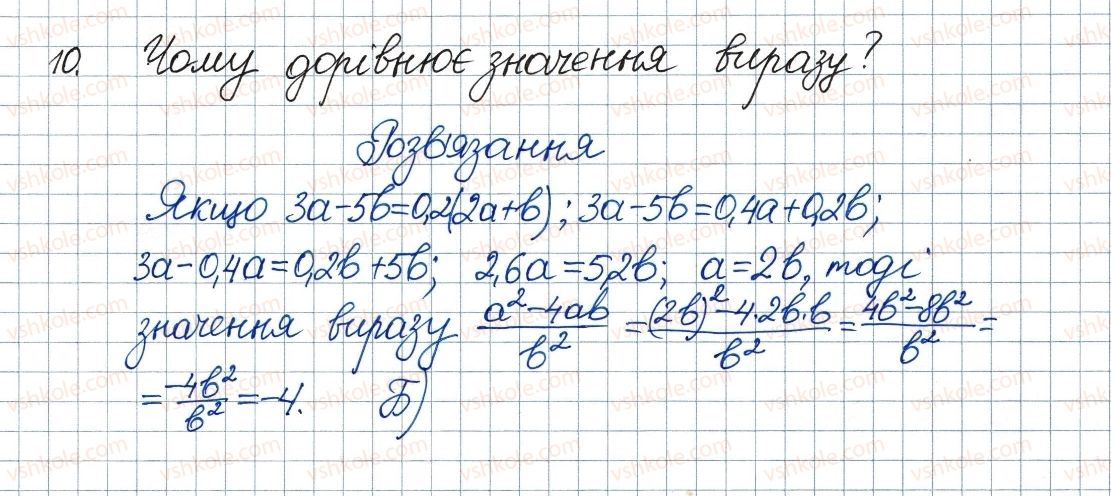 10. Чому дорівнює значення виразу?
Розв'язання
Якщо 3a-5b=0,2(2a+b); 3a-5b=0,4a+0,2b;
3a-0,4a=0,2b+5b; 2,6a=5,2b; a=2b, тоді
значення виразу (a²-4ab)/b² = ((2b)²-4·2b·b)/b² = (4b²-8b²)/b² =
= (-4b²)/b² = -4. Б)